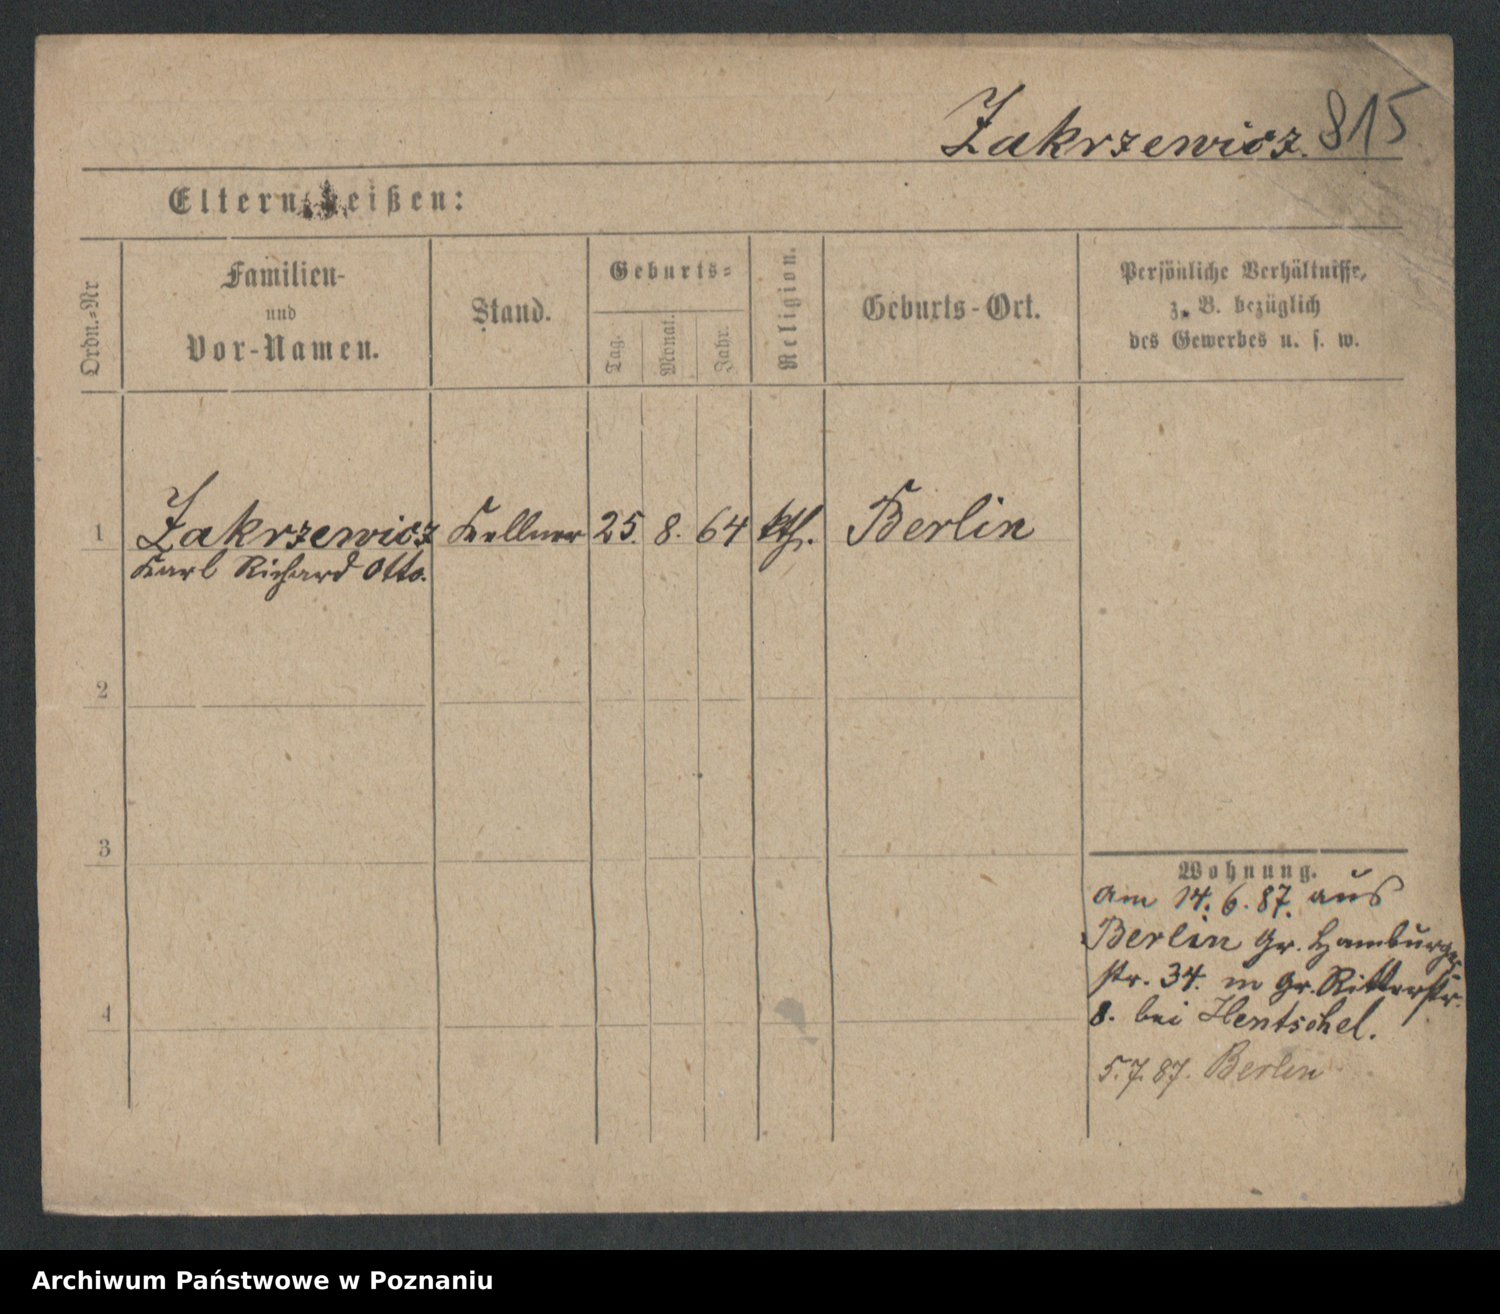 Zakrzewicz. 815
Eltern heißen:
Ordn.-Nr
Familien-
und
Vor-Namen.
Stand.
Geburts-
Tag.
Monat.
Jahr.
Religion.
Geburts-Ort.
Persönliche Verhältnisse,
z. B. bezüglich
des Gewerbes u. s. w.
1 Zakrzewicz Kellner 25. 8. 64 kth. Berlin
Karl Richard Otto.
2
3
4
Wohnung.
am 14. 6. 87. aus
Berlin Gr. Hamburger
str. 34. in Gr. Ritterstr.
8. bei Hentschel.
5.7.87. Berlin
Archiwum Państwowe w Poznaniu